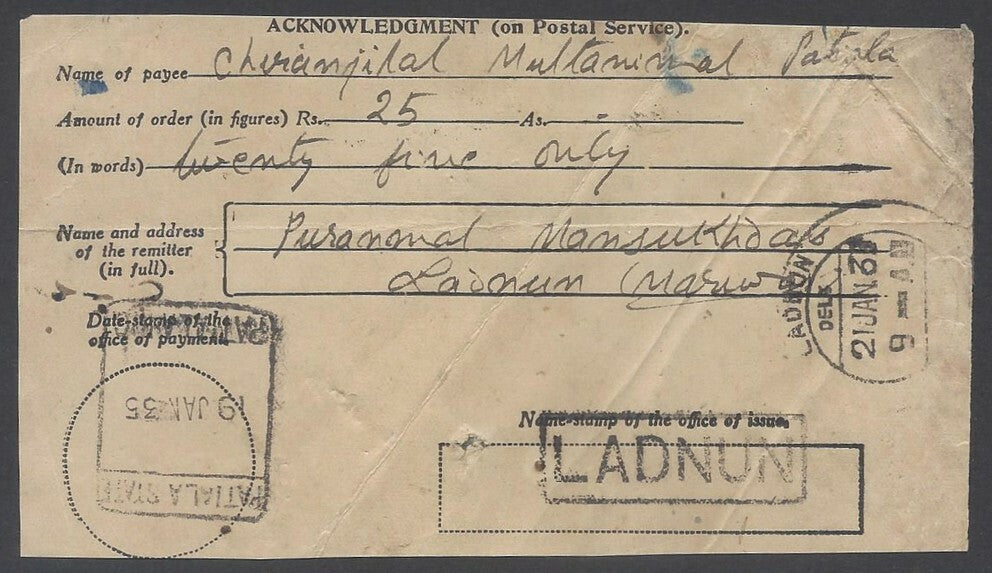 ACKNOWLEDGMENT (on Postal Service).
Name of payee Chiranjilal Multanimal Patiala
Amount of order (in figures) Rs. 25 As. -
(In words) twenty five only
Name and address of the remitter (in full). Puranmal Mansukhdas
Ladnun (Marw
LADNUN
21 JAN 35
9 - A.M
Date-stamp of the office of payment.
19 JAN 35
PATIALA STATE
Name-stamp of the office of issue.
LADNUN